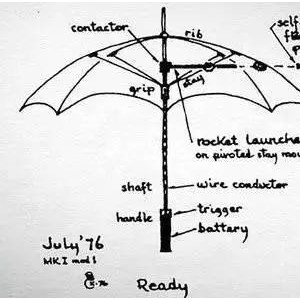 contactor
rib
self
stay
grip
rocket launche
on pivoted stay mou
shaft
wire conductor
handle
trigger
battery
July '76
MK.I mod 1
Ready